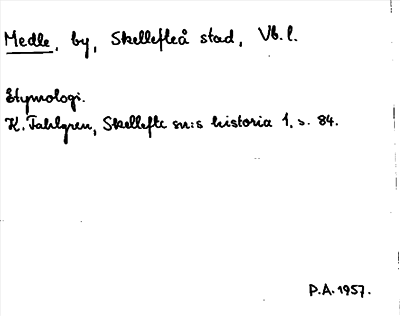 Medle, by, Skellefteå stad, Vb. l.
Etymologi.
K. Fahlgren, Skellefte sn:s historia 1, s. 84.
P.A. 1957.